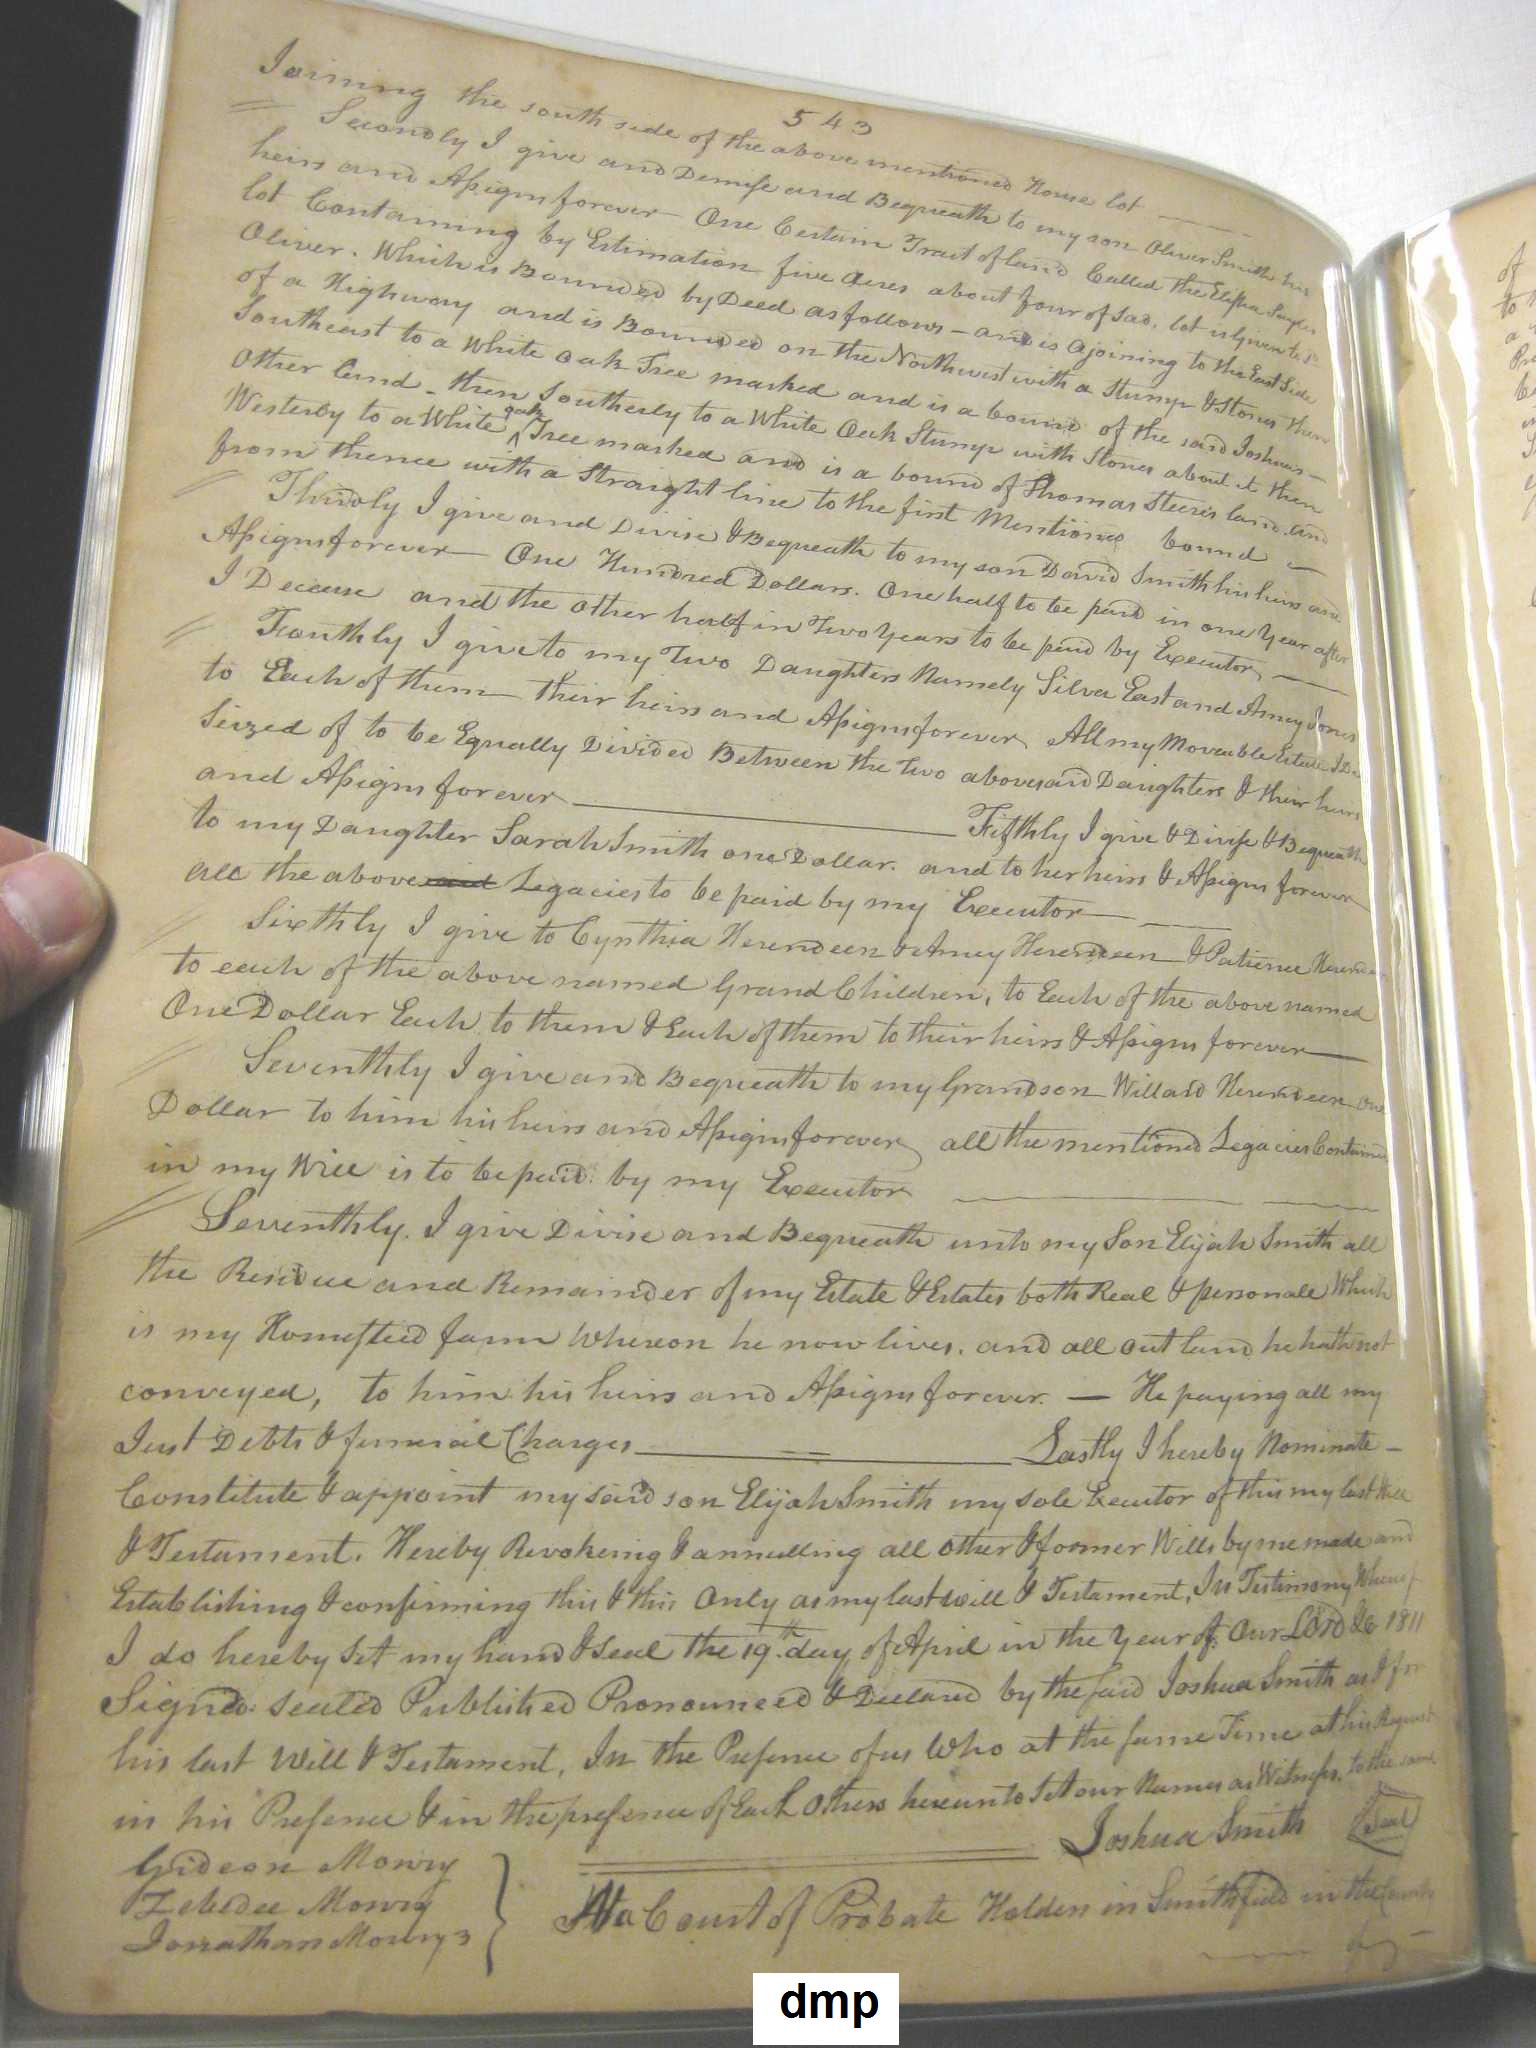 543
Joining the south side of the above mentioned House lot
Secondly I give and Demise and Bequeath to my son Oliver Smith his
heirs and Assigns forever One Certain Tract of land Called the Elisha
lot Containing by Estimation five Acres about four of sad. lot is Given to sd
Oliver. Which is Bounded by Deed as follows - and is ajoining to the East Side
of a Highway and is Bounded on the Northwest with a Stump & Stones then
Southeast to a White oak Tree marked and is a bound of the said Joshuas -
other Land - then Southerly to a White Oak Stump with Stones about it then
Westerly to a White oak Tree marked and is a bound of Thomas Steeres land and
from thence with a straight line to the first Mentioned bound
Thirdly I give and Divise & Bequeath to my son David Smith his heirs and
Assigns forever One Hundred Dollars. One half to be paid in one Year after
I Decease and the other half in Two Years to be paid by Executor
Fouthly I give to my Two Daughters Namely Silva East and Amey Jones
to Each of them their heirs and Assigns forever All my Moveable Estate I Die
Seized of to be Equally Divided Between the Two abovesaid Daughters & their heirs
and Assigns forever Fifthly I give & Divise & Bequeath
to my Daughter Sarah Smith one Dollar. and to her heirs & Assigns forever
all the above Legacies to be paid by my Executor
Sixthly I give to Cynthia Herendeen & Amey Herendeen & Patience Herendeen
to each of the above named Grand Children, to Each of the above named
One Dollar Each to them & Each of them to their heirs & Assigns forever
Seventhly I give and Bequeath to my Grandson Willard Herendeen One
Dollar to him his heirs and Assigns forever all the mentioned Legacies Contained
in my Will is to be paid by my Executor
Seventhly. I give Divise and Bequeath unto my Son Elijah Smith all
the Residue and Remainder of my Estate & Estates both Real & personale Which
is my Homested farm Whereon he now lives, and all out land he hath not
conveyed, to him his heirs and Assigns forever. - He paying all my
Just Debts & funeral Charges Lastly I hereby Nominate -
Constitute & appoint my said son Elijah Smith my sole Executor of this my last Will
& Testament. Hereby Revokeing & annulling all other & former Wills by me made and
Establishing & confirming this & this Only as my last will & Testament, In Testimony Whereof
I do hereby Set my hand & Seal the 19th day of April in the Year of Our Lord &c 1811
Signed. sealed Published Pronounced & Declared by the said Joshua Smith as & for
his last Will & Testament, In the Presence of us Who at the same Time at his Request
in his Presence & in the presence of Each Others hereunto Set our Names as Witness. to the same
Joshua Smith Seal
Gideon Mowry
Zebedee Mowry
Jonathan Mowry 3
At a Court of Probate Holden in Smithfield in the County
of
dmp